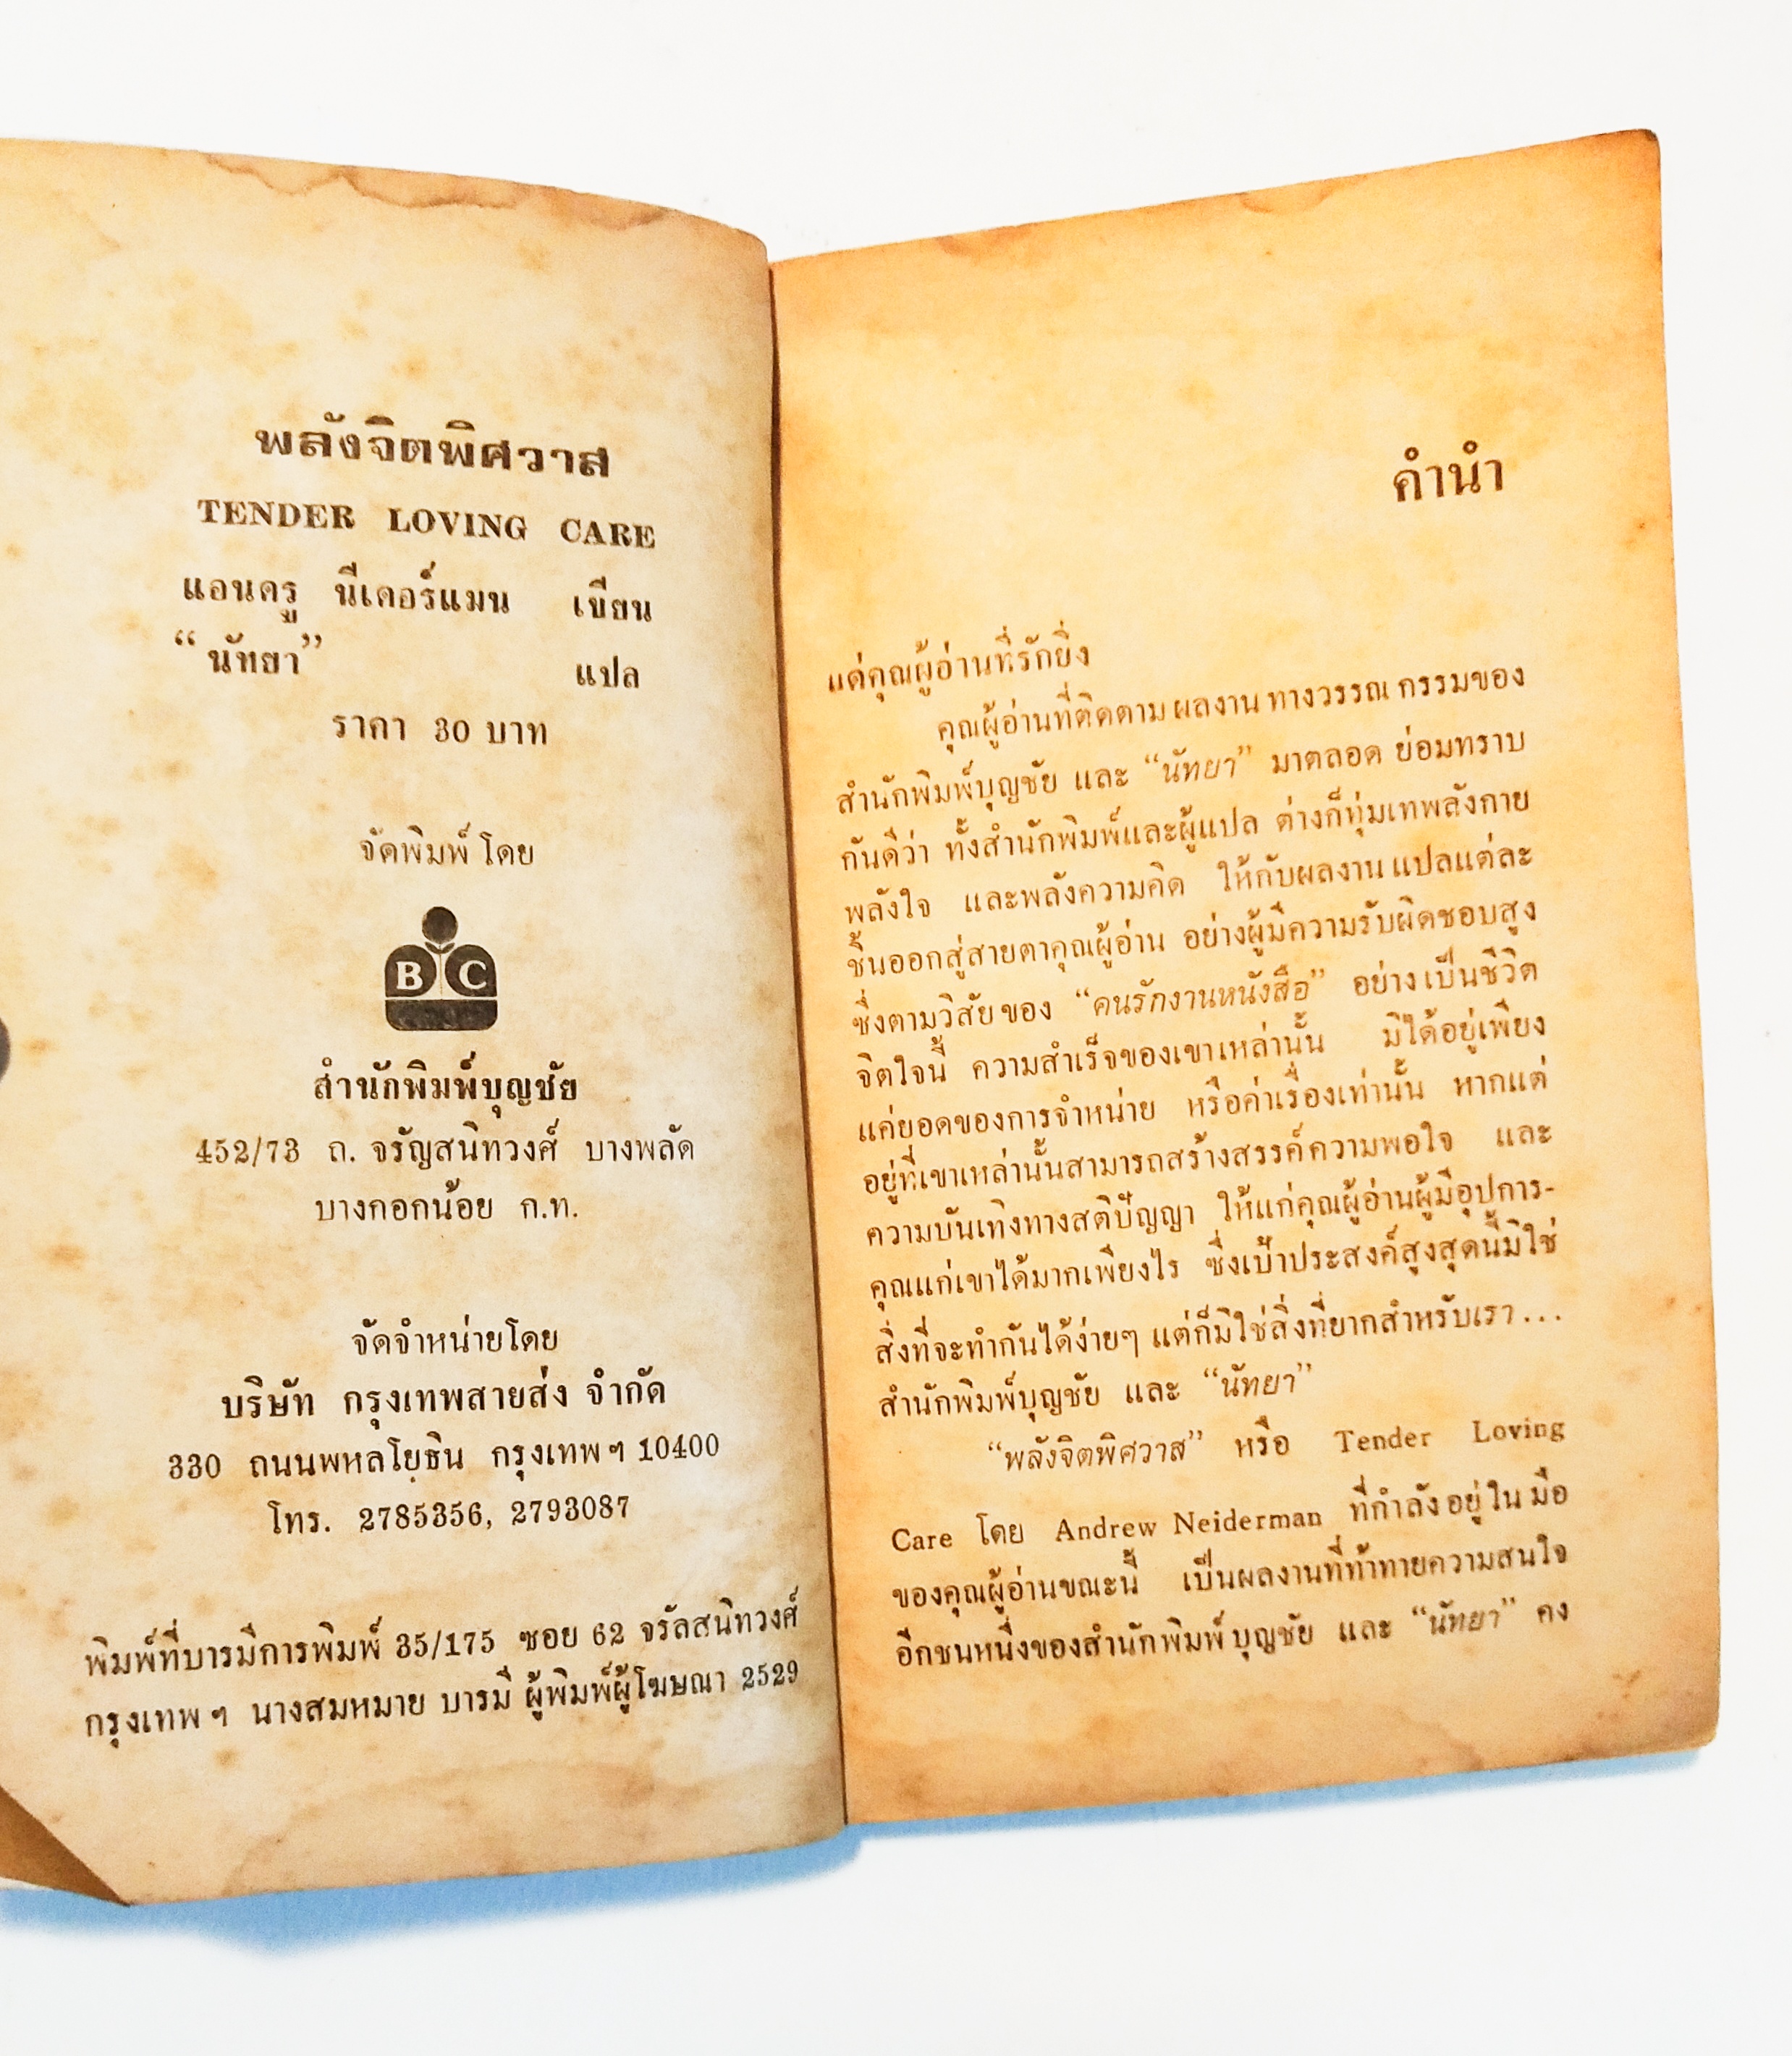 พลังจิตพิศวาส
TENDER LOVING CARE
แอนดรู นีเดอร์แมน เขียน
“นัทยา” แปล
ราคา 30 บาท
จัดพิมพ์โดย
B C
สำนักพิมพ์บุญชัย
452/73 ถ. จรัญสนิทวงศ์ บางพลัด
บางกอกน้อย ก.ท.
จัดจำหน่ายโดย
บริษัท กรุงเทพสายส่ง จำกัด
330 ถนนพหลโยธิน กรุงเทพฯ 10400
โทร. 2785356, 2793087
พิมพ์ที่บารมีการพิมพ์ 35/175 ซอย 62 จรัลสนิทวงศ์
กรุงเทพฯ นางสมหมาย บารมี ผู้พิมพ์ผู้โฆษณา 2529
คำนำ
แด่คุณผู้อ่านที่รักยิ่ง
คุณผู้อ่านที่ติดตามผลงานทางวรรณกรรมของ
สำนักพิมพ์บุญชัย และ “นัทยา” มาตลอด ย่อมทราบ
กันดีว่า ทั้งสำนักพิมพ์และผู้แปล ต่างก็ทุ่มเทพลังกาย
พลังใจ และพลังความคิด ให้กับผลงานแปลแต่ละ
ชิ้นออกสู่สายตาคุณผู้อ่าน อย่างผู้มีความรับผิดชอบสูง
ซึ่งตามวิสัยของ “คนรักงานหนังสือ” อย่างเป็นชีวิต
จิตใจนี้ ความสำเร็จของเขาเหล่านั้น มิได้อยู่เพียง
แค่ยอดของการจำหน่าย หรือค่าเรื่องเท่านั้น หากแต่
อยู่ที่เขาเหล่านั้นสามารถสร้างสรรค์ความพอใจ และ
ความบันเทิงทางสติปัญญา ให้แก่คุณผู้อ่านผู้มีอุปการ-
คุณแก่เขาได้มากเพียงไร ซึ่งเป้าประสงค์สูงสุดนี้มิใช่
สิ่งที่จะทำกันได้ง่ายๆ แต่ก็มิใช่สิ่งที่ยากสำหรับเรา...
สำนักพิมพ์บุญชัย และ “นัทยา”
“พลังจิตพิศวาส” หรือ Tender Loving
Care โดย Andrew Neiderman ที่กำลังอยู่ในมือ
ของคุณผู้อ่านขณะนี้ เป็นผลงานที่ท้าทายความสนใจ
อีกชนหนึ่งของสำนักพิมพ์บุญชัย และ “นัทยา” คง